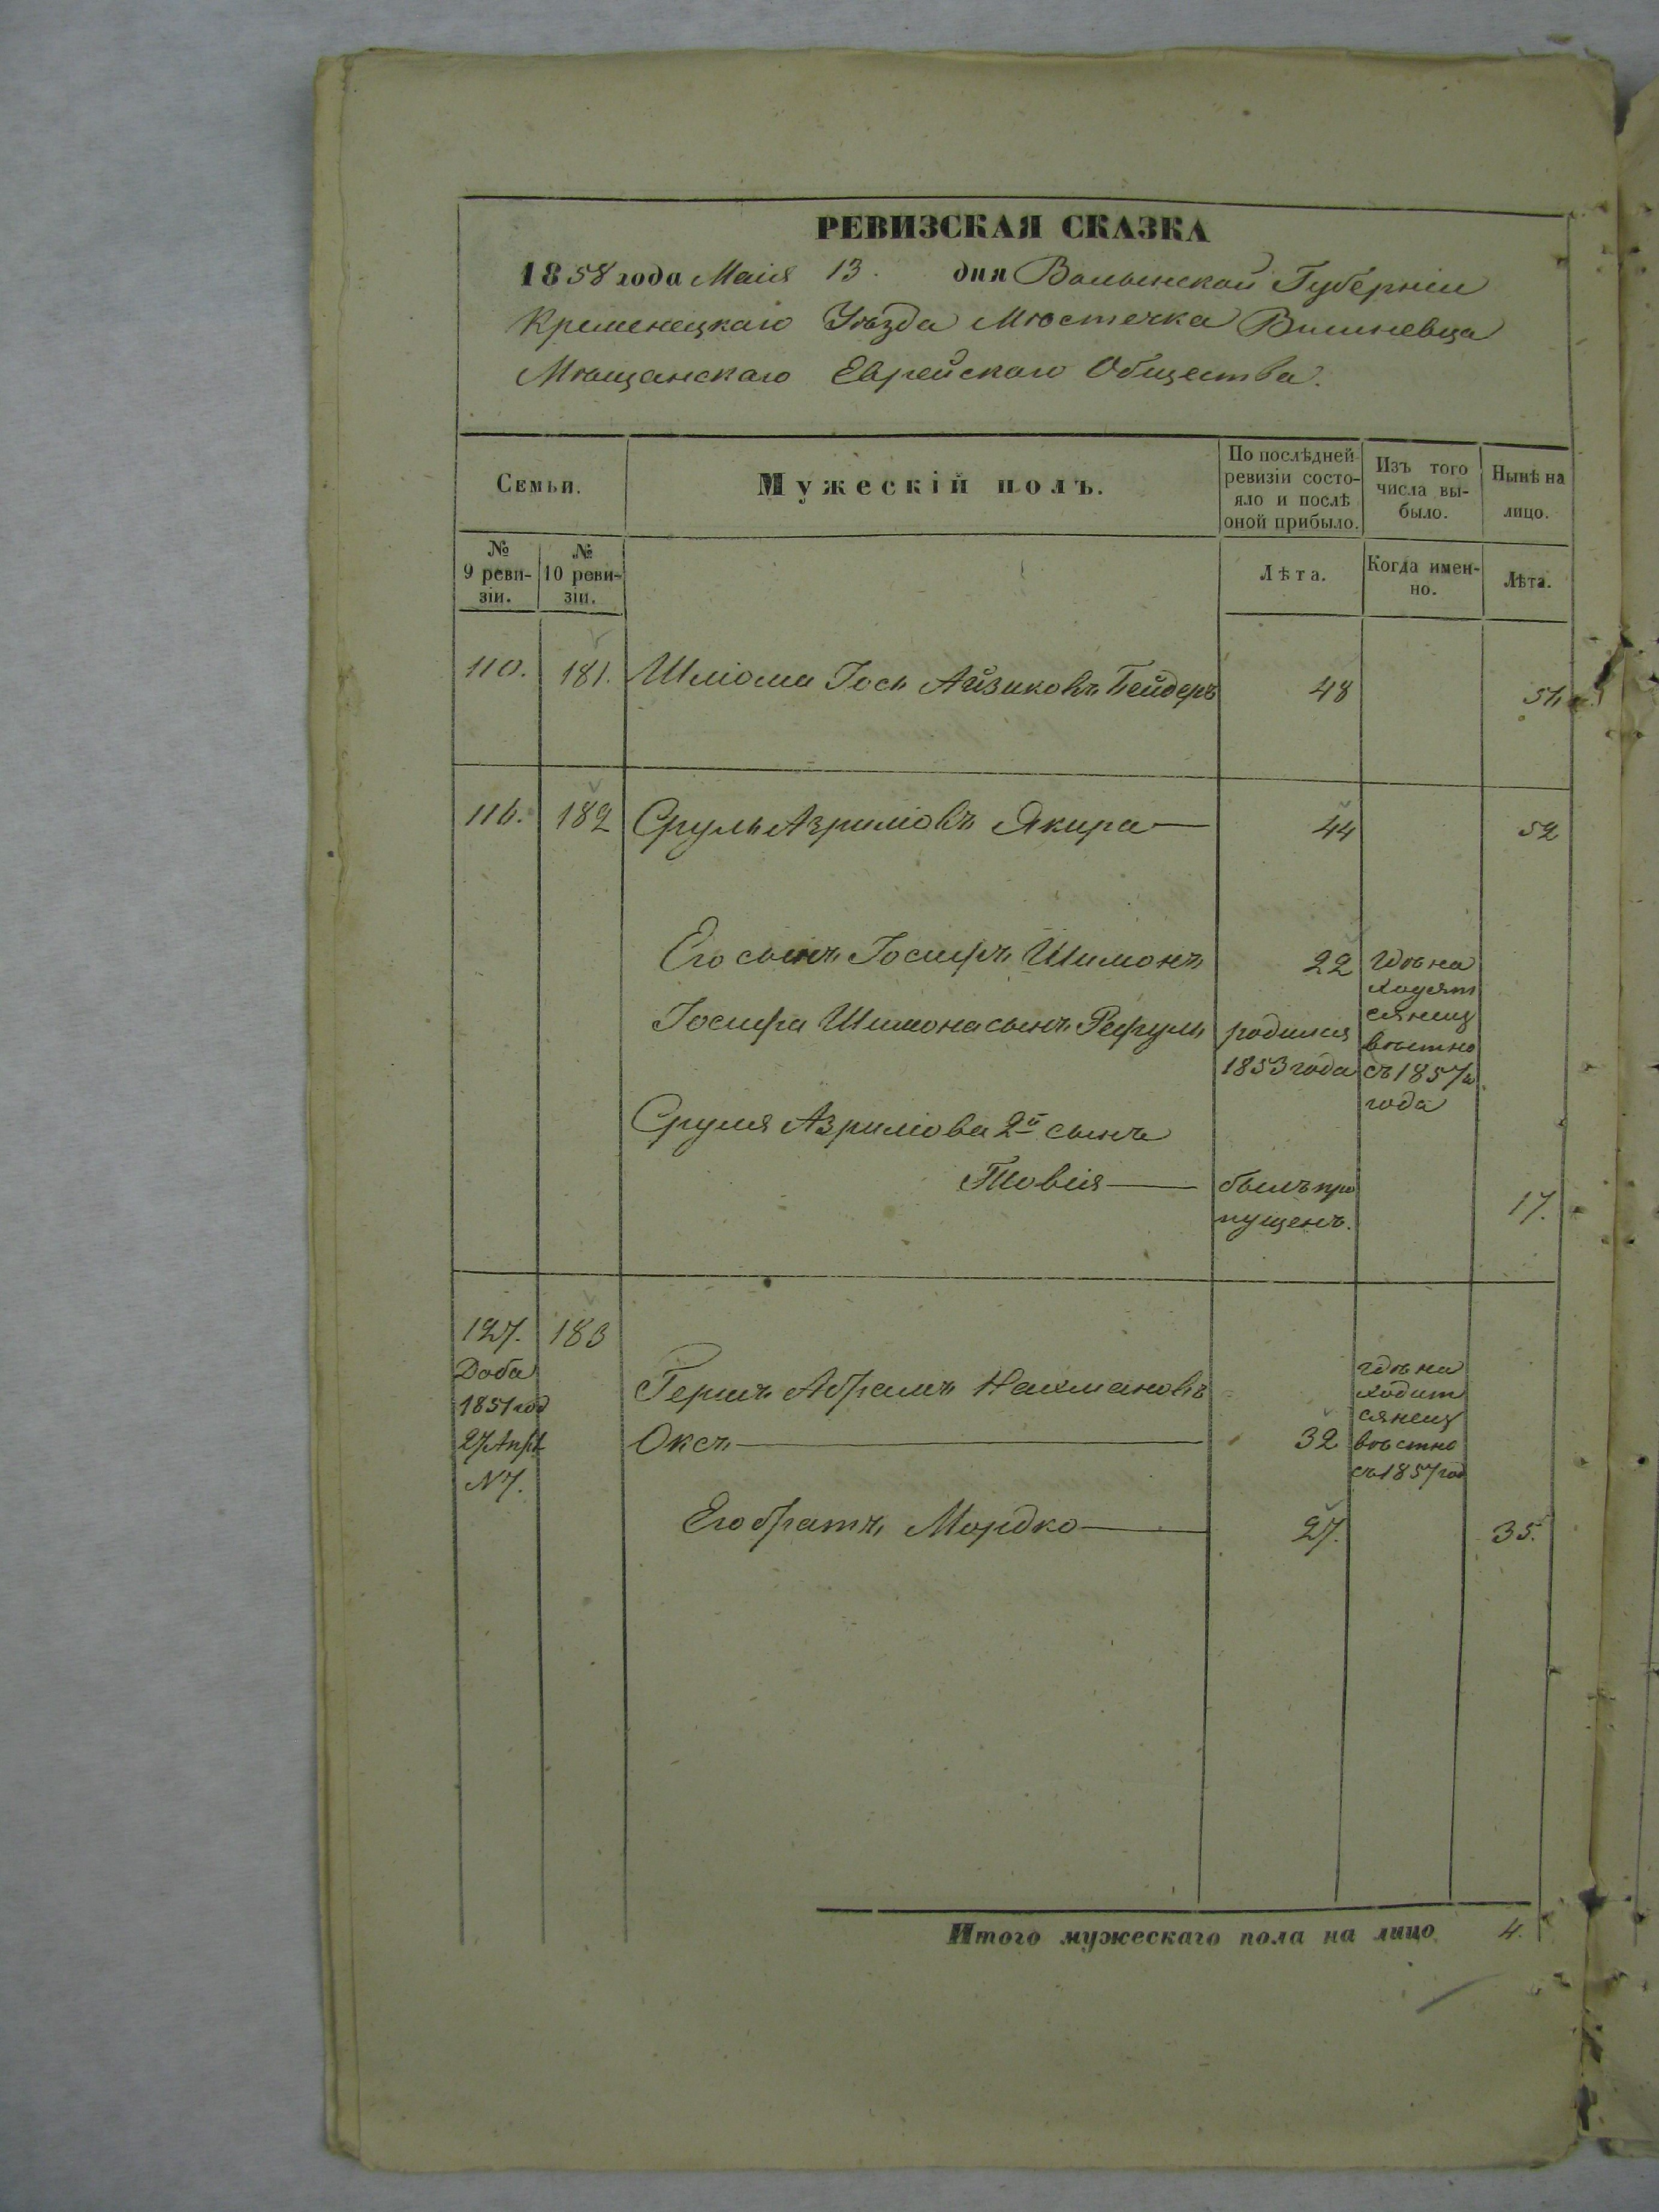 РЕВИЗСКАЯ СКАЗКА
1858 года Маія 13. дня Волынской Губерніи
Кременецкаго Уѣзда Мѣстечка Вишневца
Мѣщанскаго Еврейскаго Общества.
Семьи.
Мужескій полъ.
По послѣдней
ревизіи состо-
яло и послѣ
оной прибыло.
Изъ того
числа вы-
было.
Нынѣ на
лицо.
№
9 реви-
зіи.
№
10 реви-
зіи.
Лѣта.
Когда имен-
но.
Лѣта.
110. 181. Шліома Іось Айзиковъ Бейдеръ 48
116. 182 Сруль Азриліовъ Якира 44 52
Его сынъ Іосифъ Шимонъ 22
гдѣ на
ходят
ся неиз
вѣстно
съ 1857
года
Іосифа Шимона сынъ Рефуль родился
1853 года
Сруля Азриліова 2й сынъ
Товія былъ про
пущенъ. 17.
127. 183
Доба
1851 год
27 Апр
№ 7.
Гершъ Абрамъ Нахмановъ
Оксъ 32
гдѣ на
ходит
ся неиз
вѣстно
съ 1857 год
Его братъ Мордко 27. 35.
Итого мужескаго пола на лицо 4.